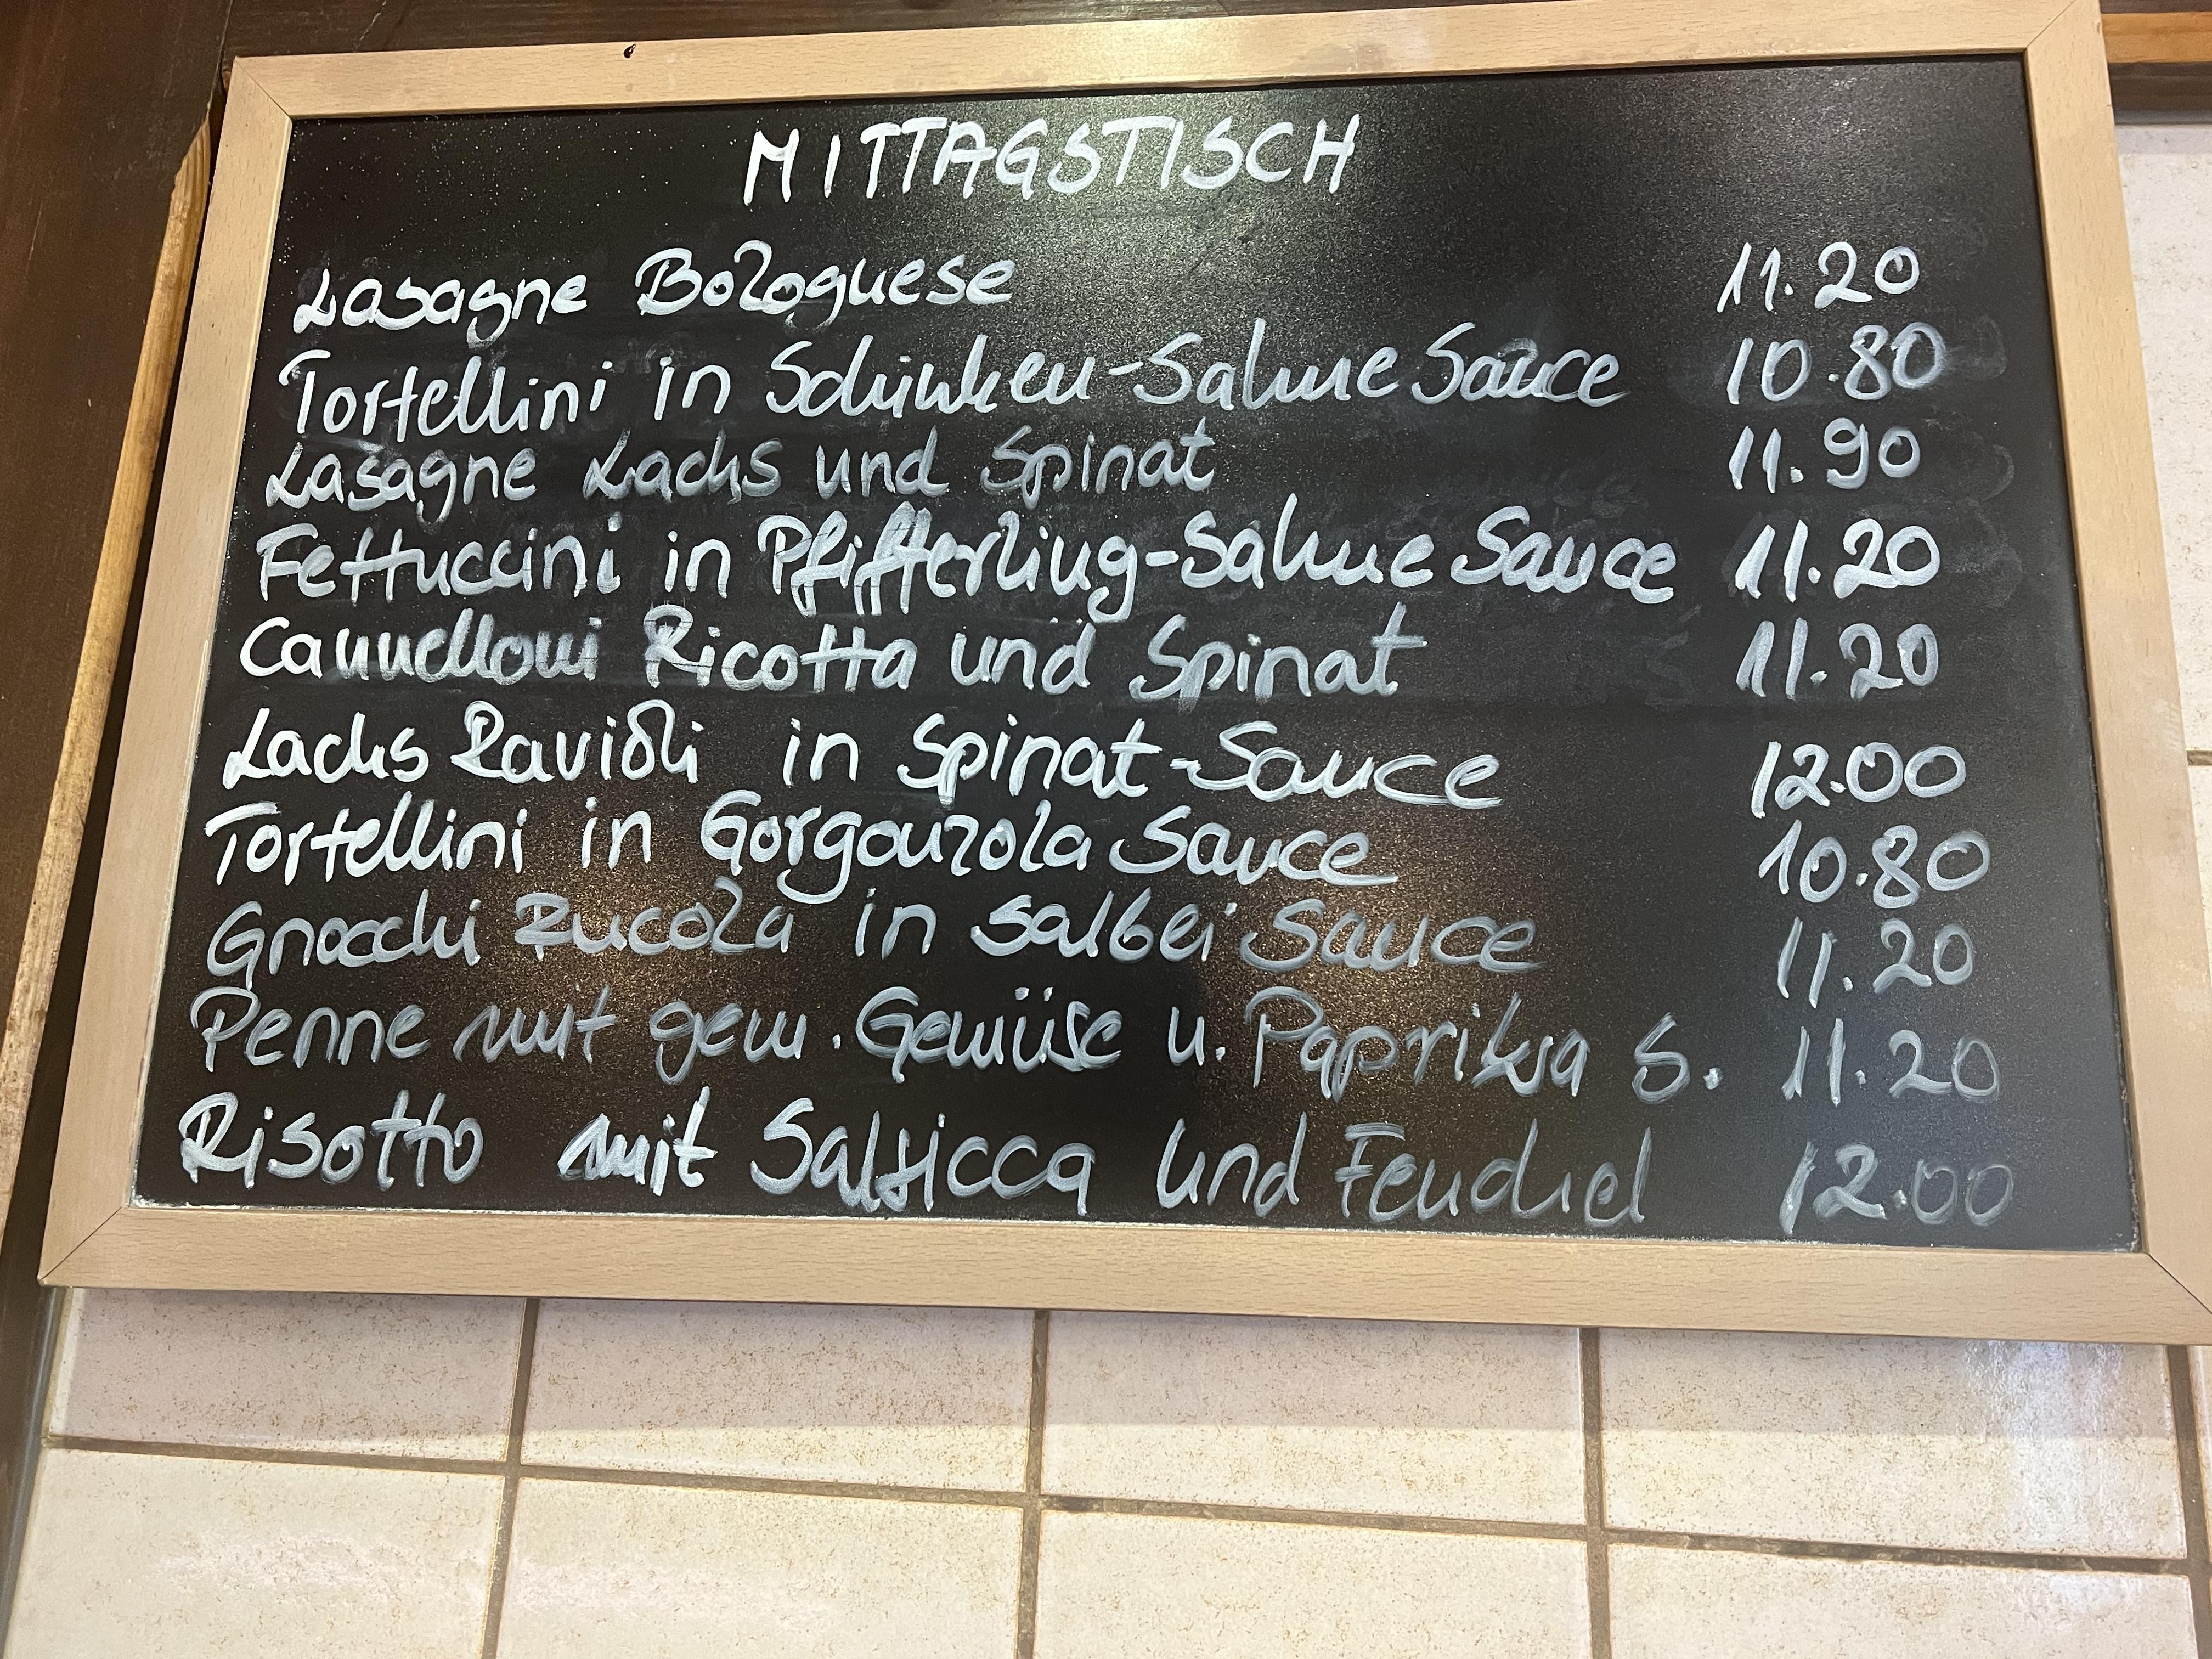 MITTAGSTISCH
Lasagne Bolognese 11.20
Tortellini in Schinken-Sahne Sauce 10.80
Lasagne Lachs und Spinat 11.90
Fettuccini in Pfifferling-Sahne Sauce 11.20
Cannelloni Ricotta und Spinat 11.20
Lachs Ravioli in Spinat-Sauce 12.00
Tortellini in Gorgonzola Sauce 10.80
Gnocchi Rucola in Salbei Sauce 11.20
Penne mit gem. Gemüse u. Paprika S. 11.20
Risotto mit Salsicca und Fenchel 12.00